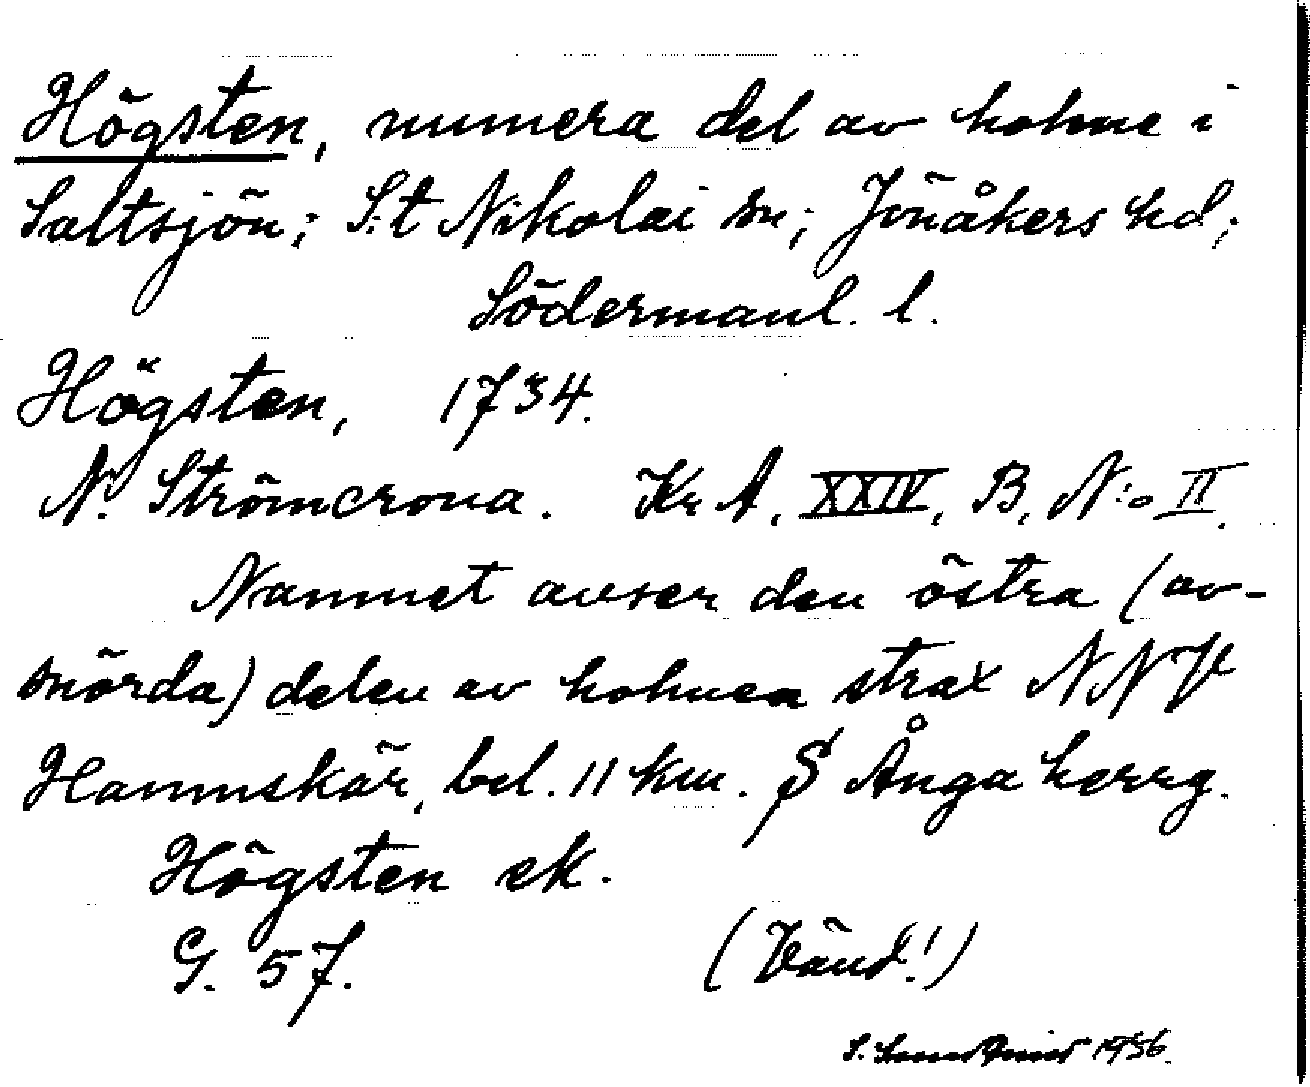 Högsten, numera del av holme i
Saltsjön; S:t Nikolai sn; Jönåkers hd;
Södermanl. l.
Högsten, 1734.
N. Strömcrona. Kr A, XXIV, B, N:o II.
Namnet avser den östra (av-
snörda) delen av holmen strax NNV
Hamnskär, bel. 11 km. S Ånga herrg.
Högsten ek.
G. 57.
(Vänd!)
S. 1936.